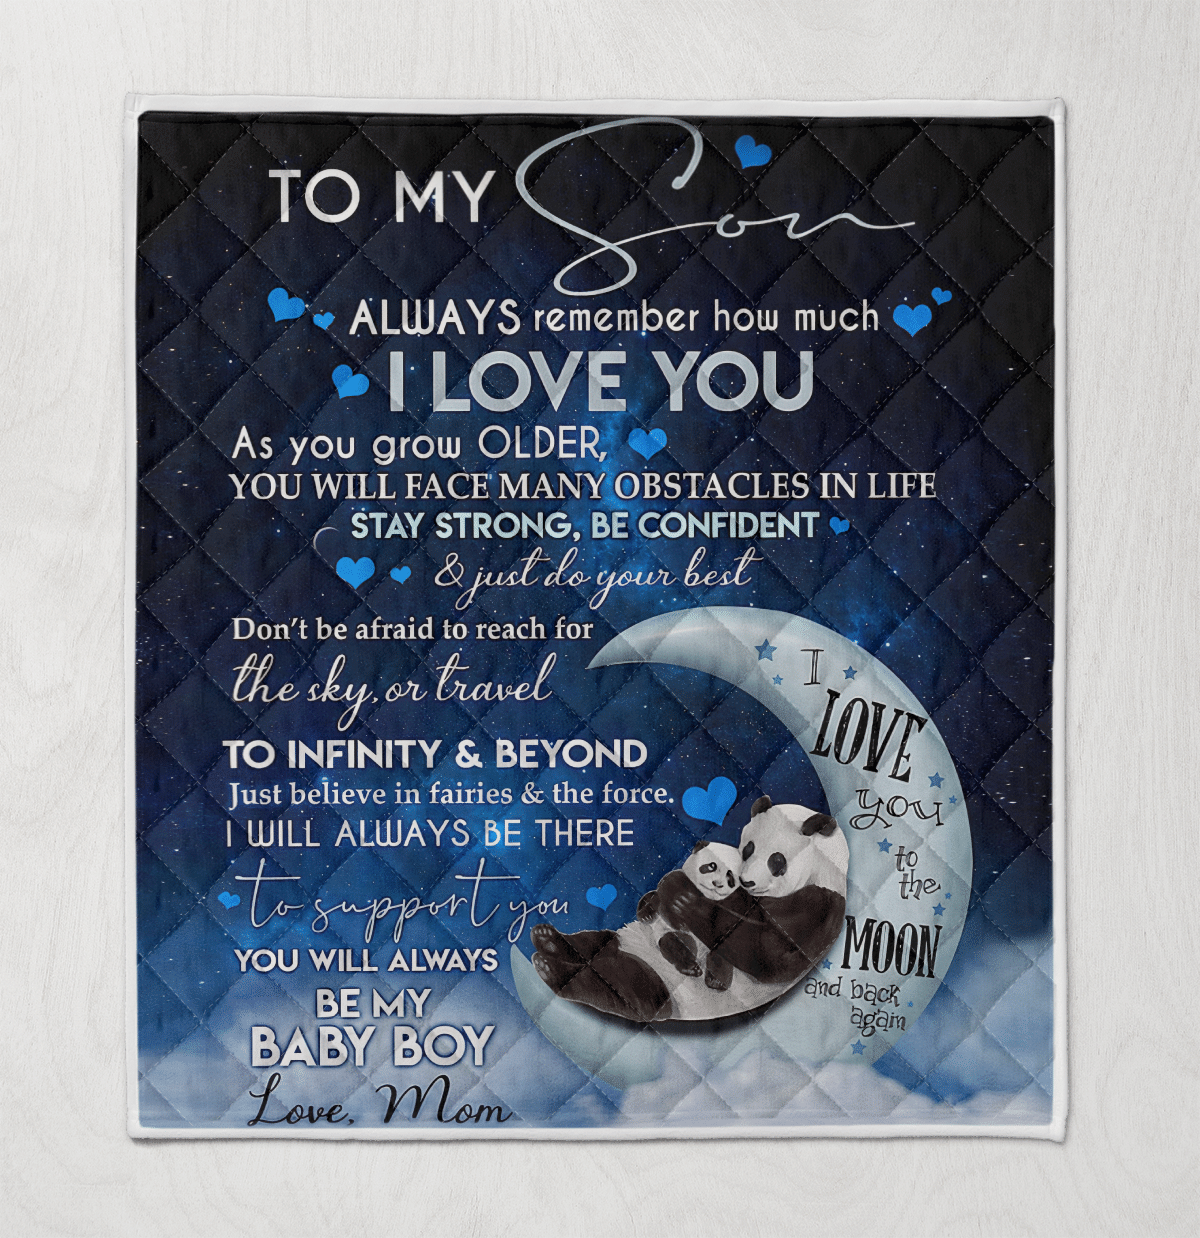 TO MY Son
ALWAYS remember how much
I LOVE YOU
As you grow OLDER,
YOU WILL FACE MANY OBSTACLES IN LIFE
STAY STRONG, BE CONFIDENT
& just do your best
Don't be afraid to reach for
the sky, or travel
TO INFINITY & BEYOND
Just believe in fairies & the force.
I WILL ALWAYS BE THERE
to support you
YOU WILL ALWAYS
BE MY
BABY BOY
Love, Mom
I
LOVE
you
to
the
MOON
and back
again